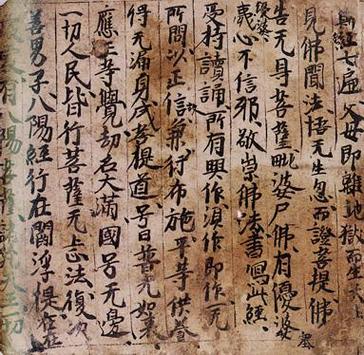 經七遍父母即離地獄而生
見佛聞法悟无生忍而證菩提佛
告无导菩薩毗婆尸佛有優婆塞
優婆夷心不信邪敬崇佛法書寫此經
受持讀誦所有興作須作即作一无
所問以正信兼行布施平等供養
得无漏身成菩提道号曰普光如來
應正等覺劫名大滿國号无邊
一切人民皆行菩薩无上法復次
善男子八陽經行在閻浮提在在
有八陽菩薩天王一切